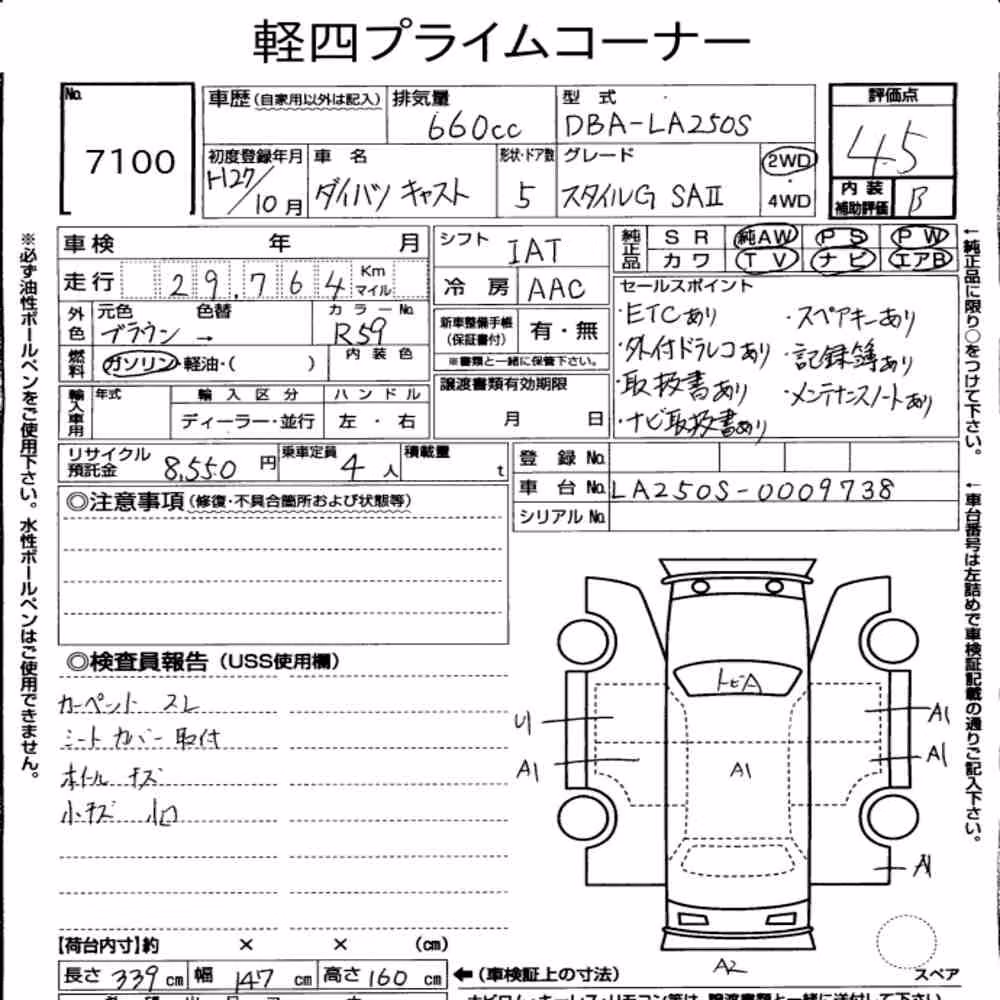 軽四プライムコーナー
No. 7100
車歴(自家用以外は記入) 排気量 660cc 型式 DBA-LA250S
初度登録年月 H27/10月 車名 ダイハツ キャスト 形状・ドア数 5 グレード スタイルG SAⅡ 2WD・4WD
評価点 4.5
内装補助評価 B
車検 年 月
走行 29.764 Km マイル
外色 元色 ブラウン → 色替 カラーNo. R59
燃料 ガソリン・軽油・( ) 内装色
輸入車用 年式 輸入区分 ディーラー・並行 ハンドル 左・右
シフト IAT
冷房 AAC
新車整備手帳(保証書付) 有・無
※書類と一緒に保管下さい。
譲渡書類有効期限 月 日
純正品 SR 純AW PS PW
カワ TV ナビ エアB
セールスポイント
・ETCあり ・スペアキーあり
・外付ドラレコあり ・記録簿あり
・取扱書あり ・メンテナンスノートあり
・ナビ取扱書あり
リサイクル預託金 8,550円 乗車定員 4人 積載量 t
登録No.
車台No. LA250S-0009738
シリアルNo.
◎注意事項(修復・不具合箇所および状態等)
◎検査員報告(USS使用欄)
カーペット スレ
シートカバー取付
ホイール キズ
小キズ 小凹
トビA
U1
A1
A1
A1
A1
A1
A2
スペア
【荷台内寸】約 × × (cm)
長さ 339cm 幅 147cm 高さ 160cm ←(車検証上の寸法)
※必ず油性ボールペンをご使用下さい。水性ボールペンはご使用できません。
←純正品に限り○をつけて下さい。
←車台番号は左詰めで車検証記載の通りご記入下さい。